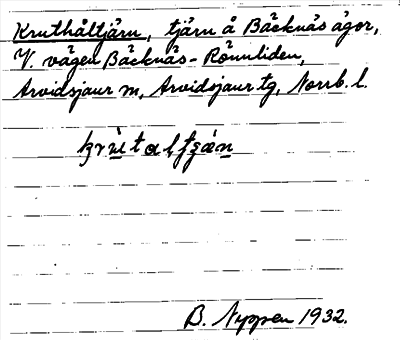 Kruthåltjärn, tjärn å Bäcknäs ägor,
V. vägen Bäcknäs - Rönnliden,
Arvidsjaur sn, Arvidsjaur tg, Norrb. l.
B. Nyppen 1932.